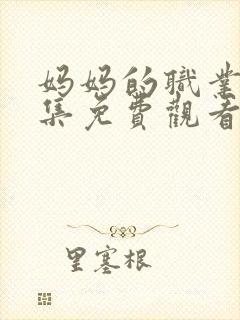 妈妈的職業
集免費觀看
里塞根